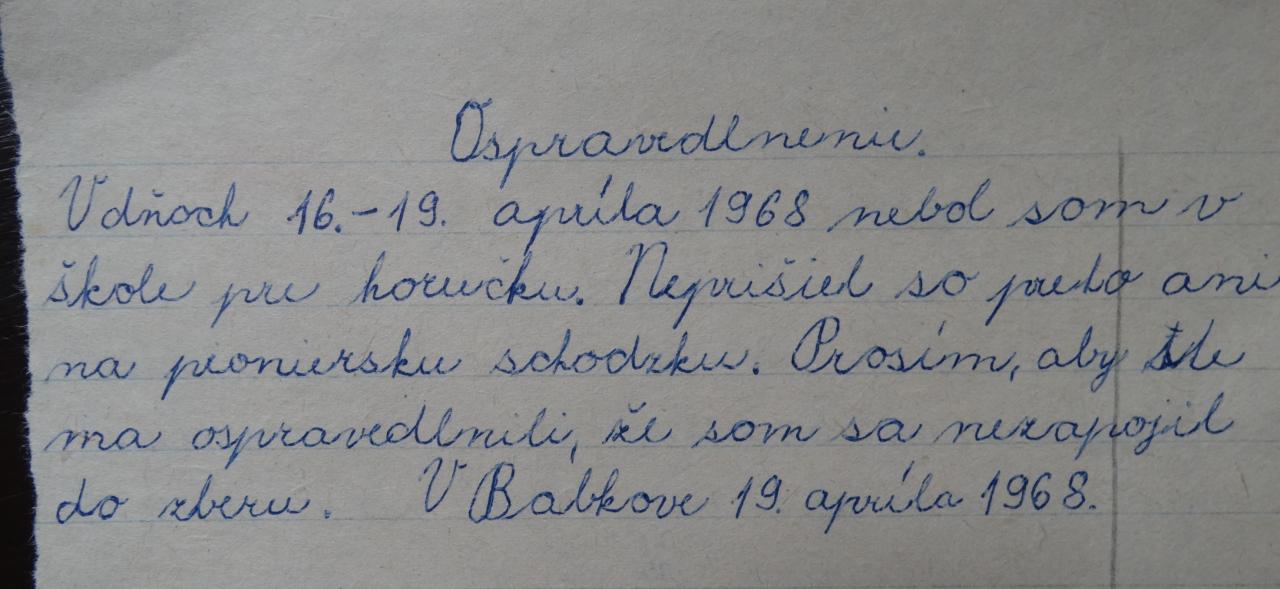 Ospravedlnenie.
V dňoch 16.-19. apríla 1968 nebol som v
škole pre horúčku. Neprišiel so preto ani
na pioniersku schôdzku. Prosím, aby ste
ma ospravedlnili, že som sa nezapojil
do zberu. V Babkove 19. apríla 1968.